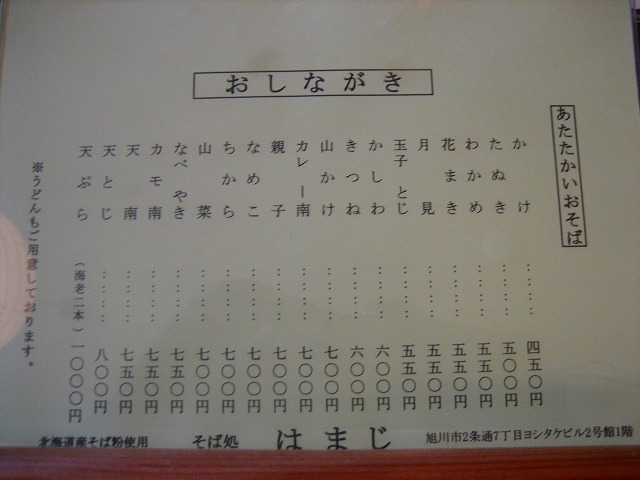 おしながき
あたたかいおそば
かけ ‥‥‥‥‥ 四五〇円
たぬき ‥‥‥‥‥ 五〇〇円
わかめ ‥‥‥‥‥ 五五〇円
花まき ‥‥‥‥‥ 五五〇円
月見 ‥‥‥‥‥ 五五〇円
玉子とじ ‥‥‥‥‥ 五五〇円
かしわ ‥‥‥‥‥ 六〇〇円
きつね ‥‥‥‥‥ 六〇〇円
山かけ ‥‥‥‥‥ 七〇〇円
カレー南 ‥‥‥‥‥ 七〇〇円
親子 ‥‥‥‥‥ 七〇〇円
なめこ ‥‥‥‥‥ 七〇〇円
ちから ‥‥‥‥‥ 七〇〇円
山菜 ‥‥‥‥‥ 七〇〇円
なべやき ‥‥‥‥‥ 七五〇円
カモ南 ‥‥‥‥‥ 七五〇円
天南 ‥‥‥‥‥ 七五〇円
天とじ ‥‥‥‥‥ 八〇〇円
天ぷら (海老二本) 一〇〇〇円
※うどんもご用意しております。
北海道産そば粉使用 そば処 はまじ 旭川市2条通7丁目ヨシタケビル2号館1階